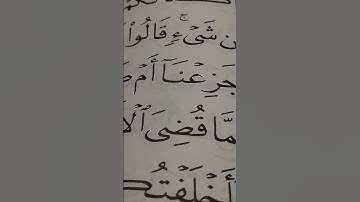 ن شَىْءٍۚ قَالُوا۟
جَزِعْنَآ أَمْ
مَّا قُضِىَ ٱلْأ
أَخْلَفْتُكُ